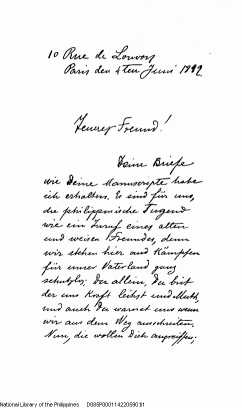 10 Rue de Louvois
Paris den 4ten Juni 1892
Teurer Freund!
Deine Briefe
wie Deine Manuscripte habe
ich erhalten. Es sind für uns,
die philippinische Jugend
wie ein Zuruf eines alten
und weisen Freundes, denn
wir stehen hier und kämpfen
für unser Vaterland ganz
schutzlos; Du allein, Du bist
der uns Kraft leihst und Muth,
und auch Du warnst uns wenn
wir aus dem Weg ausschreiten.
Nun, die wollen Dich angreifen;
National Library of the Philippines